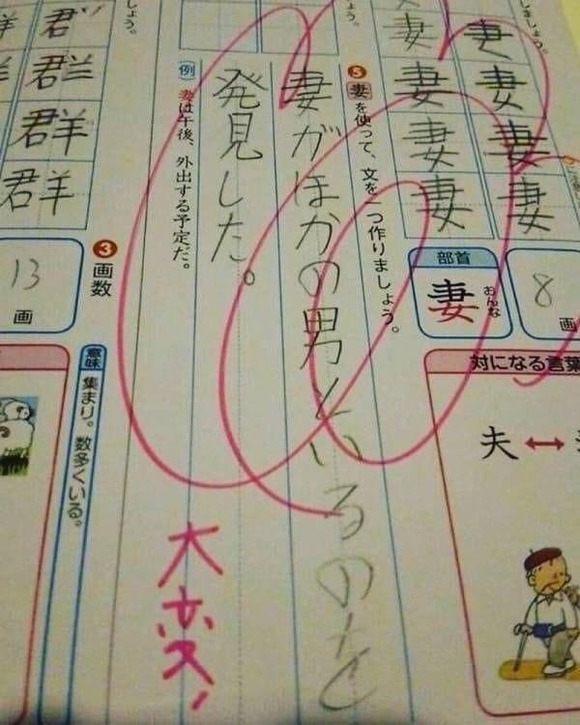 しょう。
妻
妻 妻 妻
妻
妻 妻 妻
8
画
部首
妻
おんな
対になる言葉
夫↔
しょう。
❺妻を使って、文を一つ作りましょう。
妻がほかの男といるのを
発見した。
大変!
例 妻は午後、外出する予定だ。
しょう。
群
群
群
群
❸画数
13
画
意味 集まり。数多くいる。